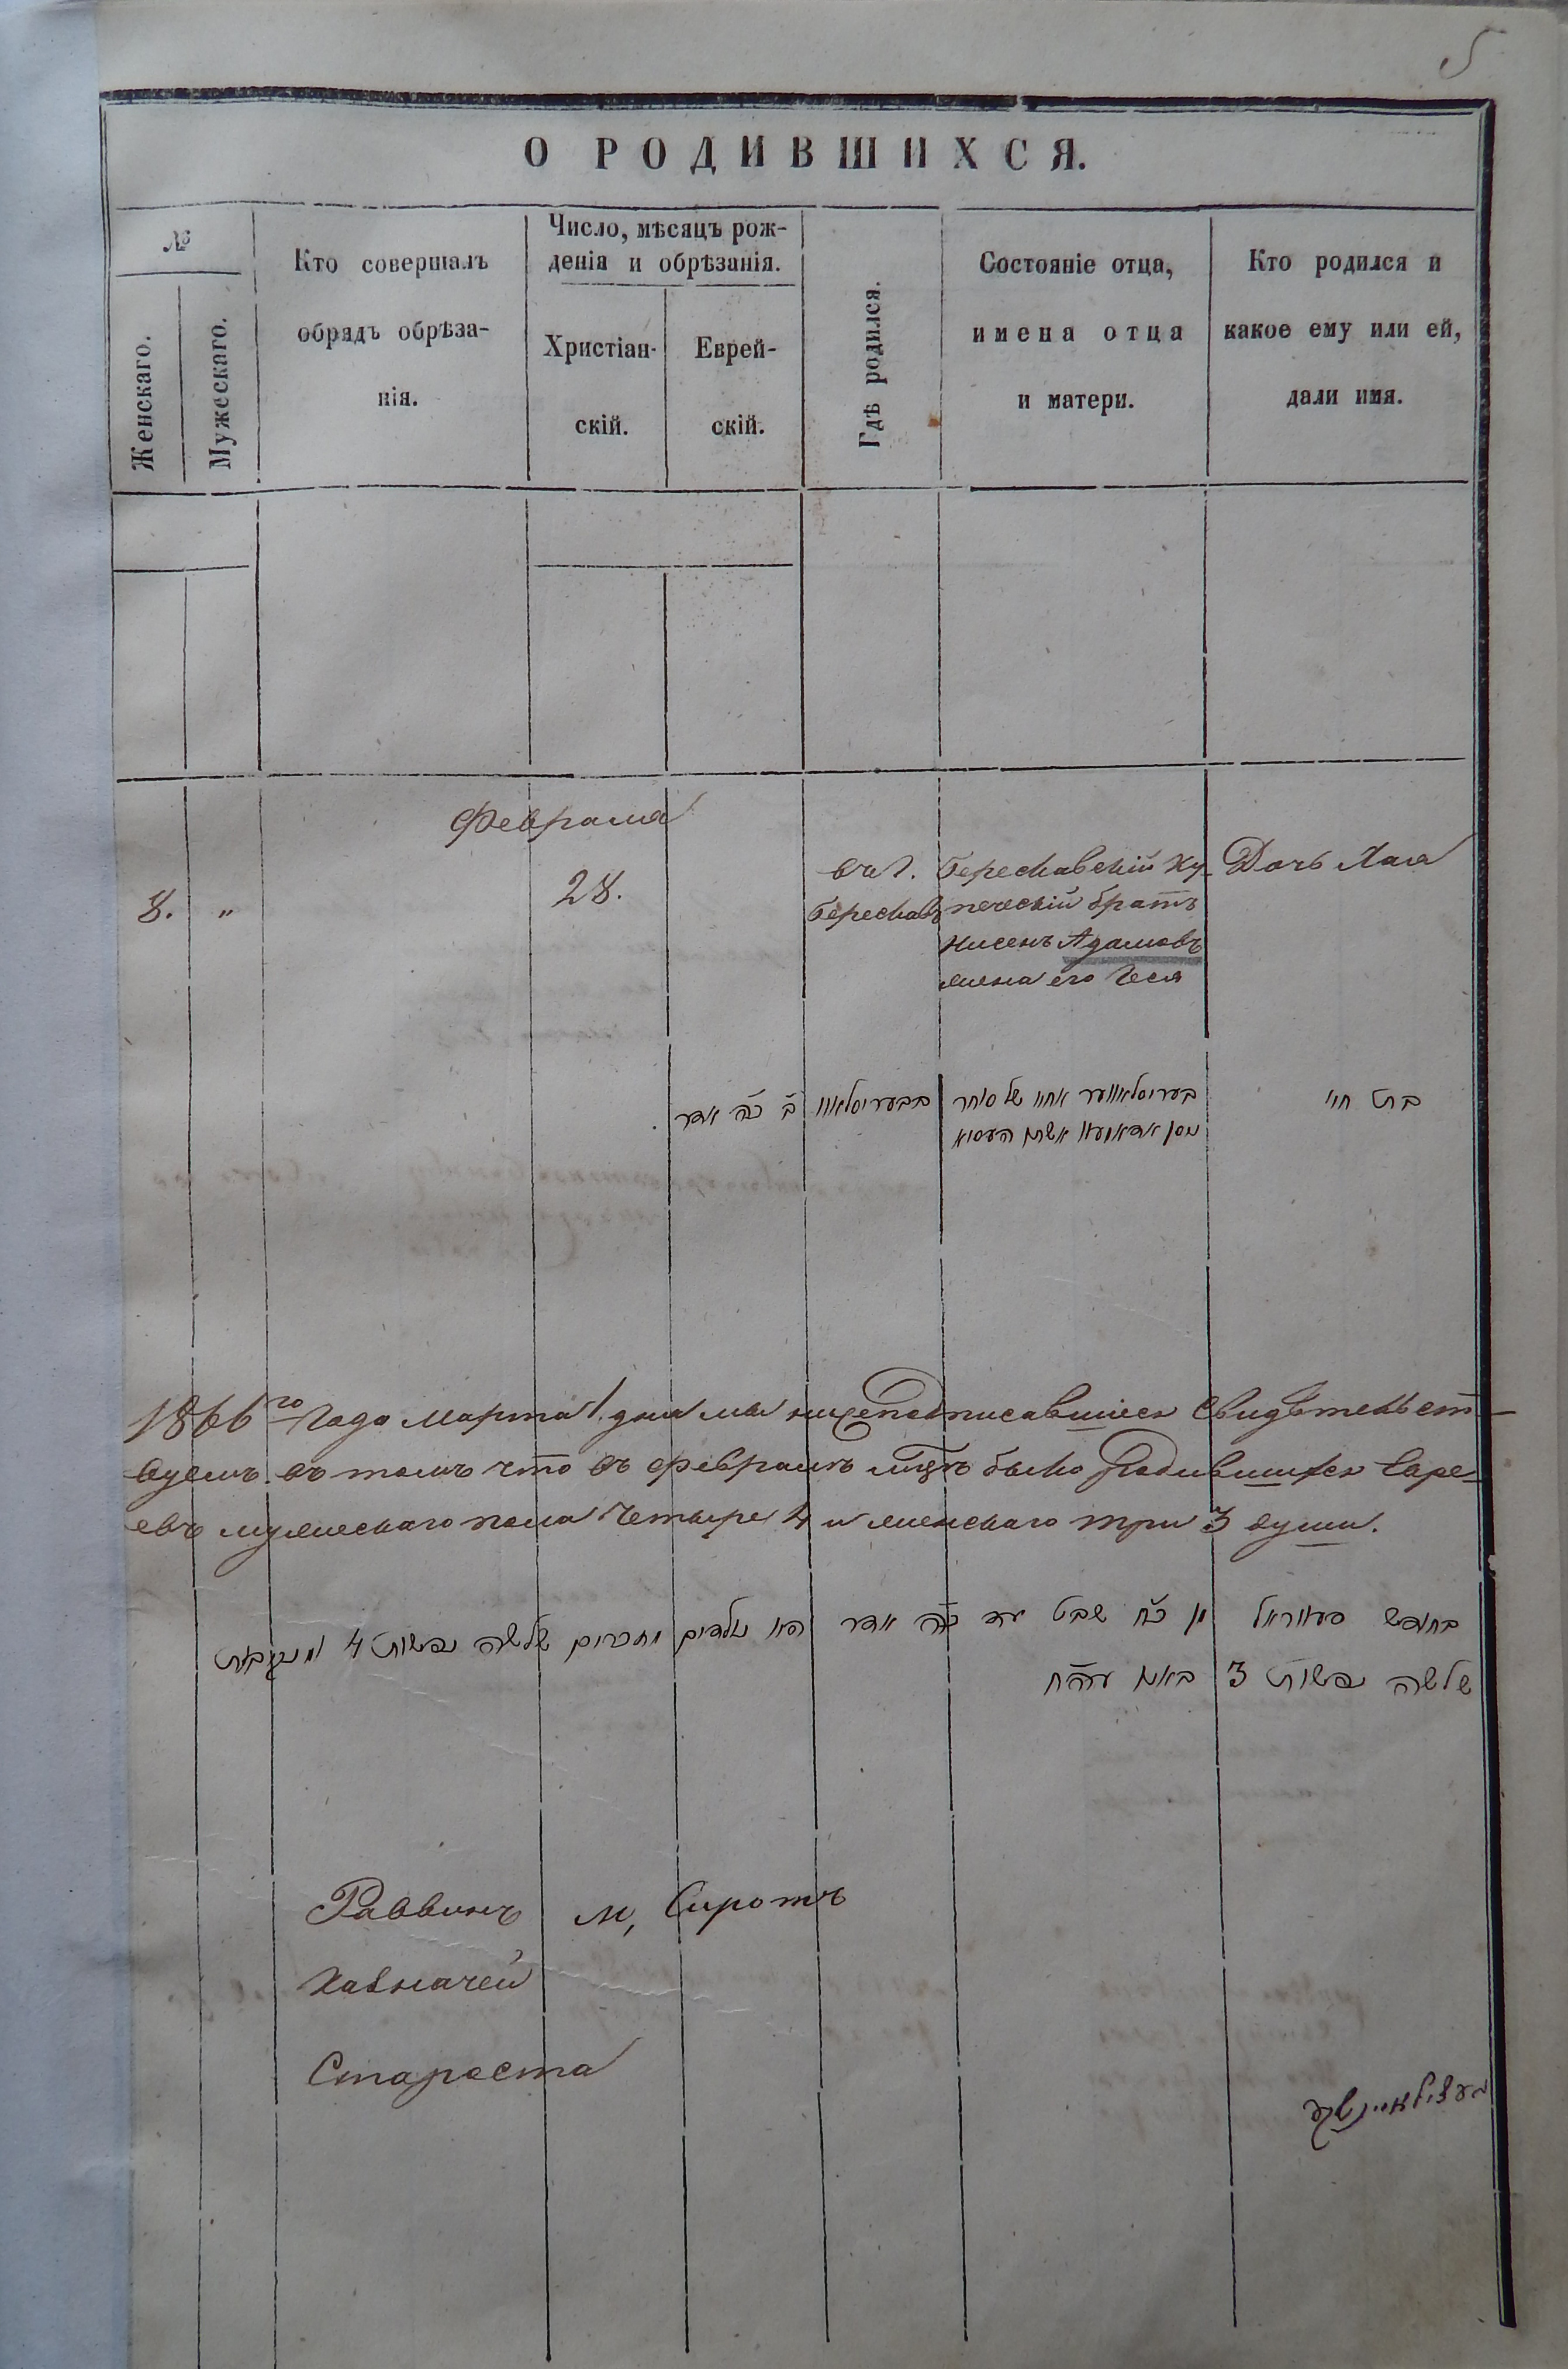 5
О РОДИВШИХСЯ.
№
Женскаго.
Мужескаго.
Кто совершалъ
обрядъ обрѣза-
нія.
Число, мѣсяцъ рож-
денія и обрѣзанія.
Христіан-
скій.
Еврей-
скій.
Гдѣ родился.
Состояніе отца,
имена отца
и матери.
Кто родился и
какое ему или ей,
дали имя.
Февраля
8. „
28.
въ г.
Бериславъ
Бериславскій ку-
печескій братъ
Нисенъ Адамовъ
жена его Геся
Дочь Хая
ב כה אדר
בבעריסלאוו
בעריסלאווער אחיו של סוחר
ניסן אדאמאוו אשתו העסיא
בת חיי
1866го Года Марта 1. дня мы нижеподписавшіеся свидѣтельст-
вуемъ въ томъ что въ февралѣ мцѣ было родившихся Евре-
евъ мужескаго пола четыре 4 и женскаго три 3 души.
בחודש פעווראל מן כח שבט עד כה אדר היו נולדים מזכרים שלשה נפשות 4 ומנקבות
שלשה נפשות 3 באתי עהח
Раввинъ М, Сиротъ
Казначей
Староста